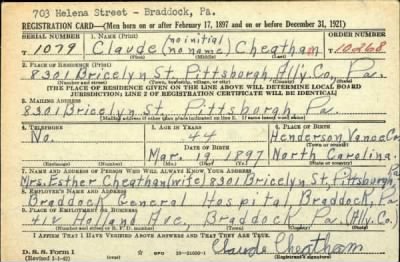 703 Helena Street - Braddock, Pa.
REGISTRATION CARD—(Men born on or after February 17, 1897 and on or before December 31, 1921)
SERIAL NUMBER 1. NAME (Print) ORDER NUMBER
T 1079 Claude (no initial no name) Cheatham T 10268
(First) (Middle) (Last)
2. PLACE OF RESIDENCE (Print)
8301 Bricelyn St, Pittsburgh, All'y. Co., Pa.
(Number and street) (Town, township, village, or city) (County) (State)
[THE PLACE OF RESIDENCE GIVEN ON THE LINE ABOVE WILL DETERMINE LOCAL BOARD
JURISDICTION; LINE 2 OF REGISTRATION CERTIFICATE WILL BE IDENTICAL]
3. MAILING ADDRESS
8301 Bricelyn St, Pittsburgh Pa.
[Mailing address if other than place indicated on line 2. If same insert word same]
4. TELEPHONE 5. AGE IN YEARS 6. PLACE OF BIRTH
No. 44 Henderson, Vance Co.
DATE OF BIRTH (Town or county)
Mar. 19 1897 North Carolina
(Exchange) (Number) (Mo.) (Day) (Yr.) (State or country)
7. NAME AND ADDRESS OF PERSON WHO WILL ALWAYS KNOW YOUR ADDRESS
Mrs. Esther Cheathan (wife) 8301 Bricelyn St, Pittsburgh, Pa
8. EMPLOYER'S NAME AND ADDRESS
Braddock General Hospital Braddock, Pa
9. PLACE OF EMPLOYMENT OR BUSINESS
412 Holland Ave, Braddock Pa (All'y. Co.)
(Number and street or R. F. D. number) (Town) (County) (State)
I AFFIRM THAT I HAVE VERIFIED ABOVE ANSWERS AND THAT THEY ARE TRUE.
D. S. S. Form 1 GPO 16—21630-1 Claude Cheatham
(Revised 1-1-42) (over) (Registrant's signature)